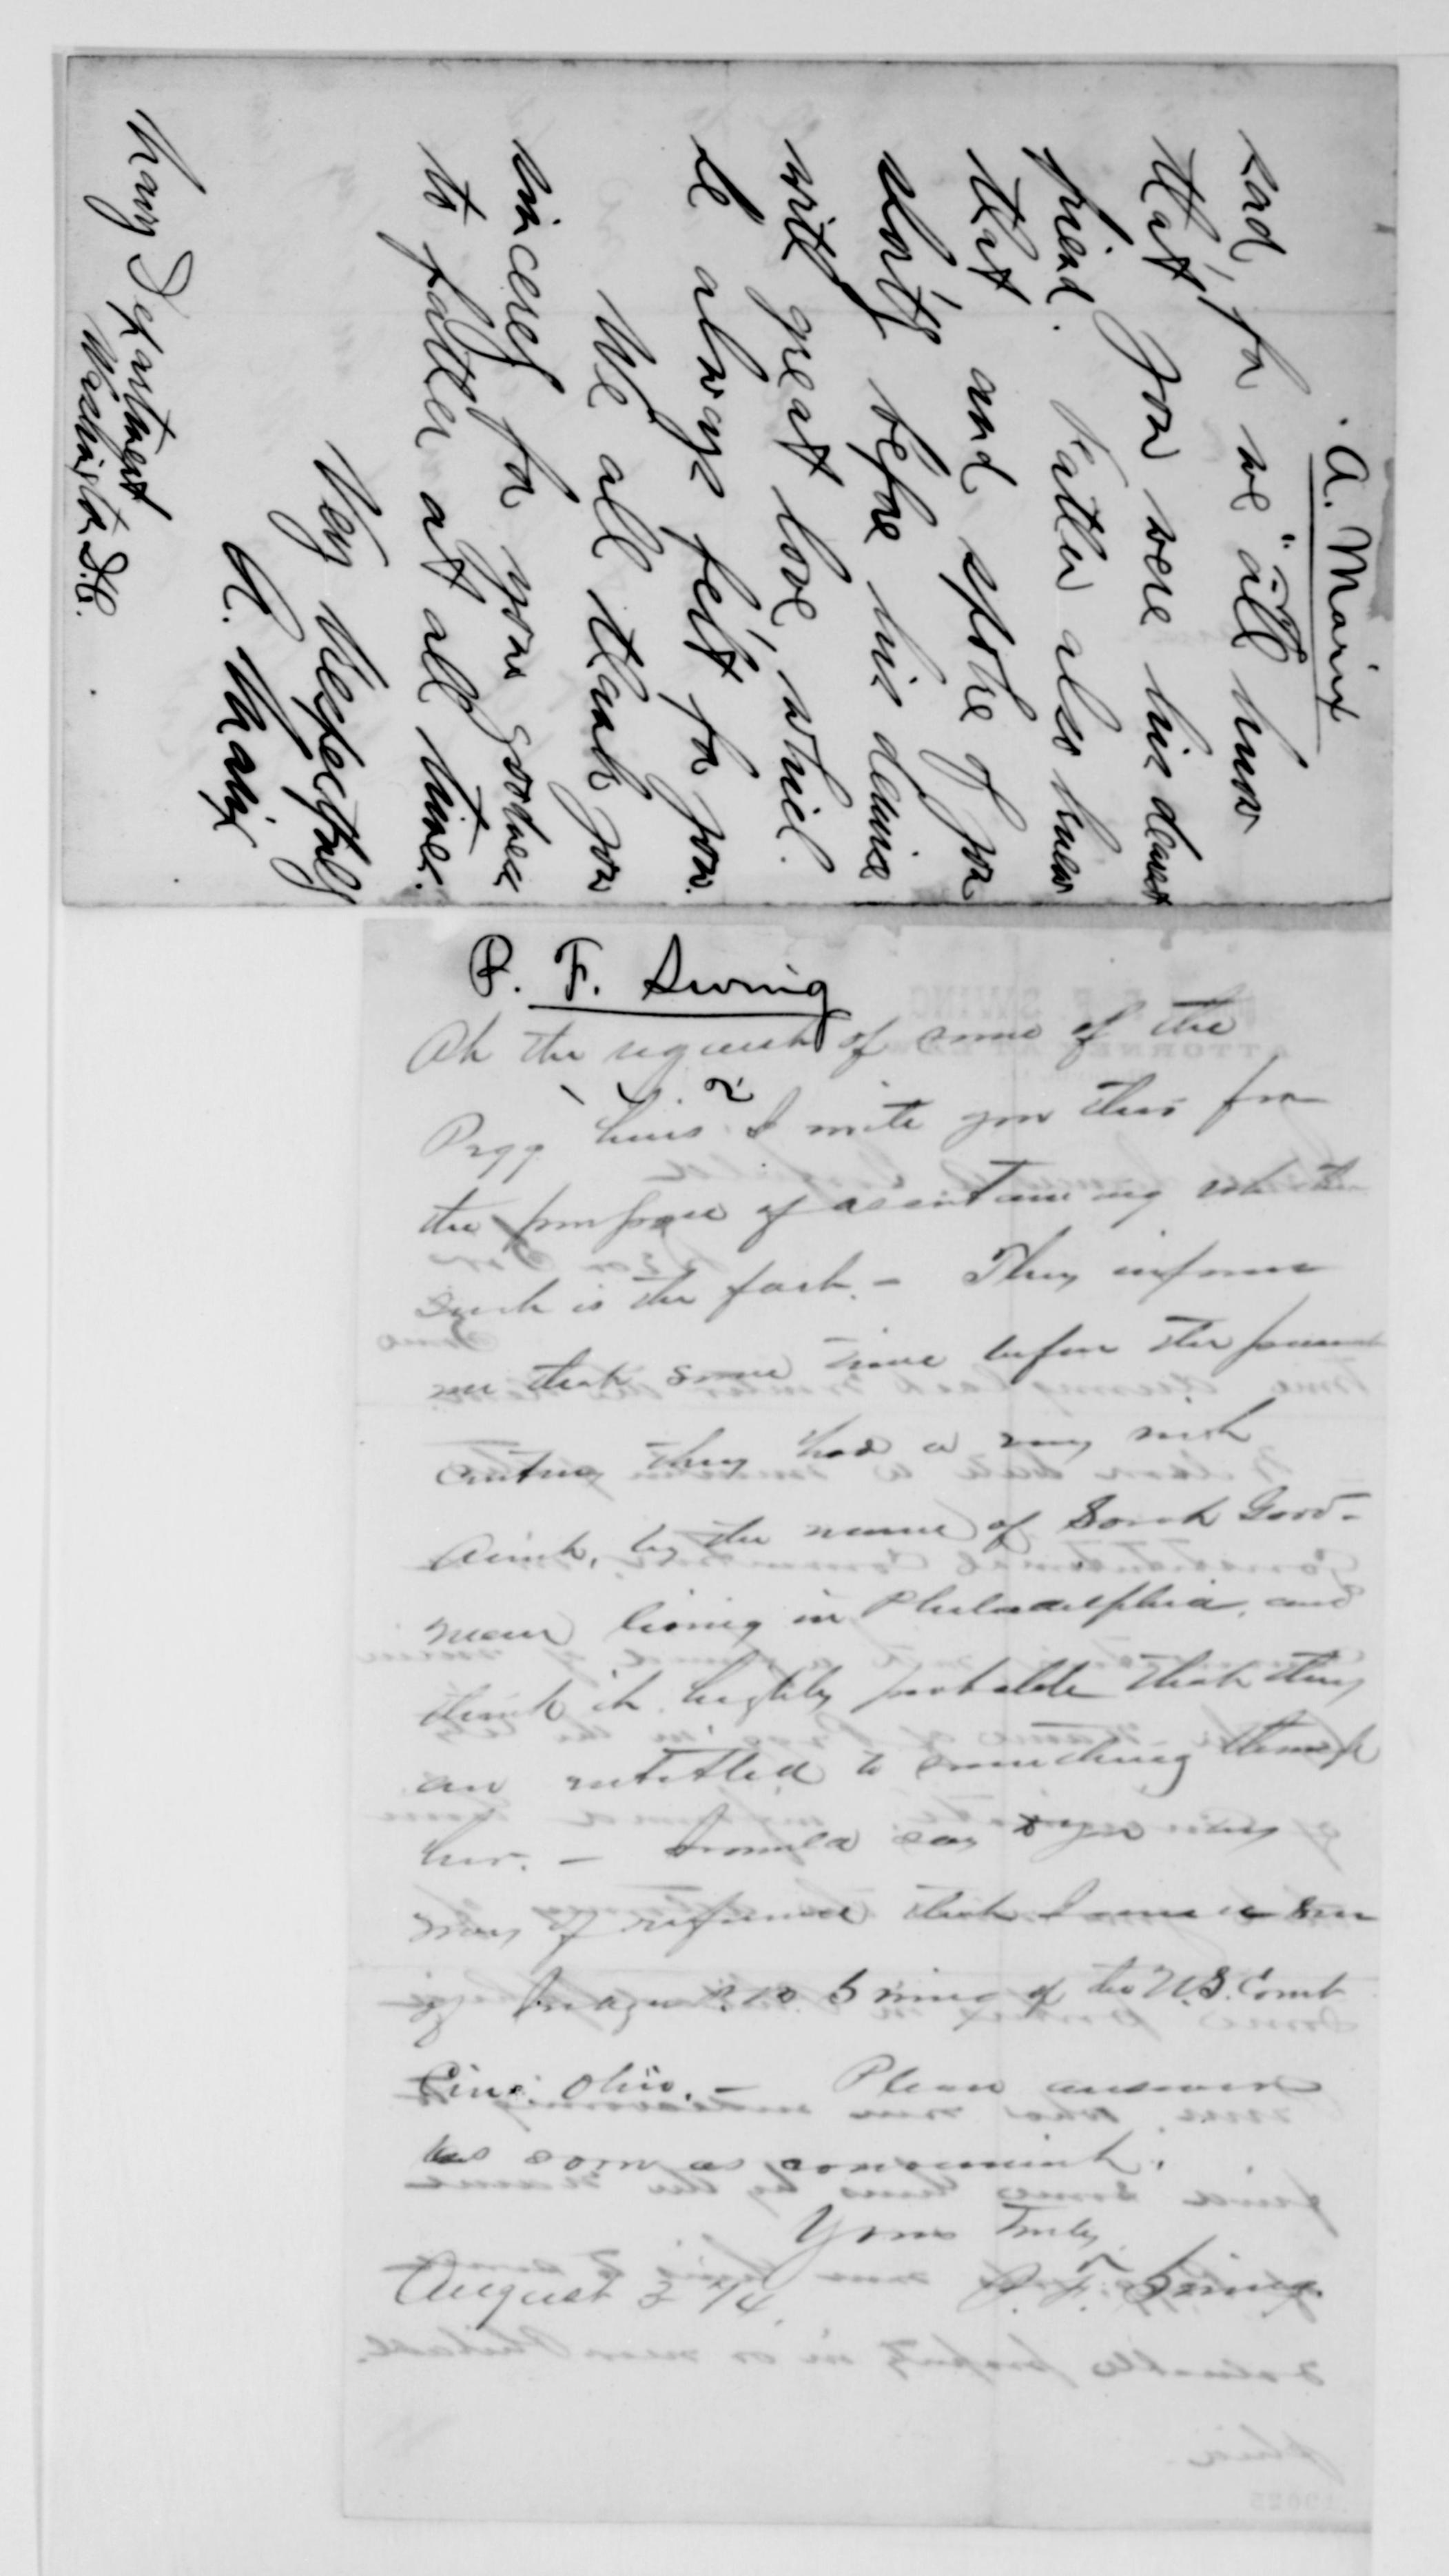 A. Marix
sad, for we all know
that, you were his dearest
friend. Father also knew
that and spoke of you
shortly before his demise
with great love, which
he always felt for you.
We all thank you
sincerely for your goodness
to father at all times.
Very Respectfully
A. Marix
Navy Department
Washington D.C.
P. F. Swing
At the request of some of the
Pegg heirs I write you this for
the purpose of ascertaining whether
such is the fact. — They inform
me that some time before the present
century they had a very rich
Aunt, by the name of Sarah Good-
man living in Philadelphia, and
think it highly probable that they
are entitled to something through
her. — I would say to you by
way of reference that I am a son
of Swing of the U.S. Court
Cinc. Ohio. — Please answer
as soon as convenient.
Yours Truly
P. F. Swing
August 2 /4